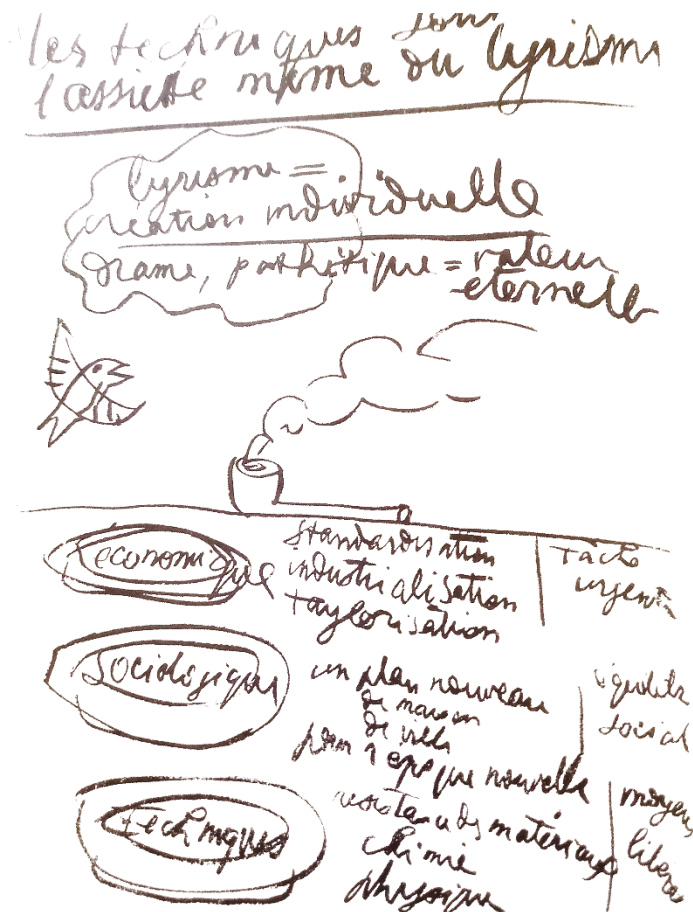 les techniques sont
l'assiette même du lyrisme
lyrisme =
création individuelle
drame, pathétique = valeur
éternelle
économique
standardisation
industrialisation
taylorisation
tâche
urgente
sociologique
un plan nouveau
de maison
de ville
pour 1 époque nouvelle
équilibre
social
techniques
resistance des matériaux
chimie
physique
moyens
libera